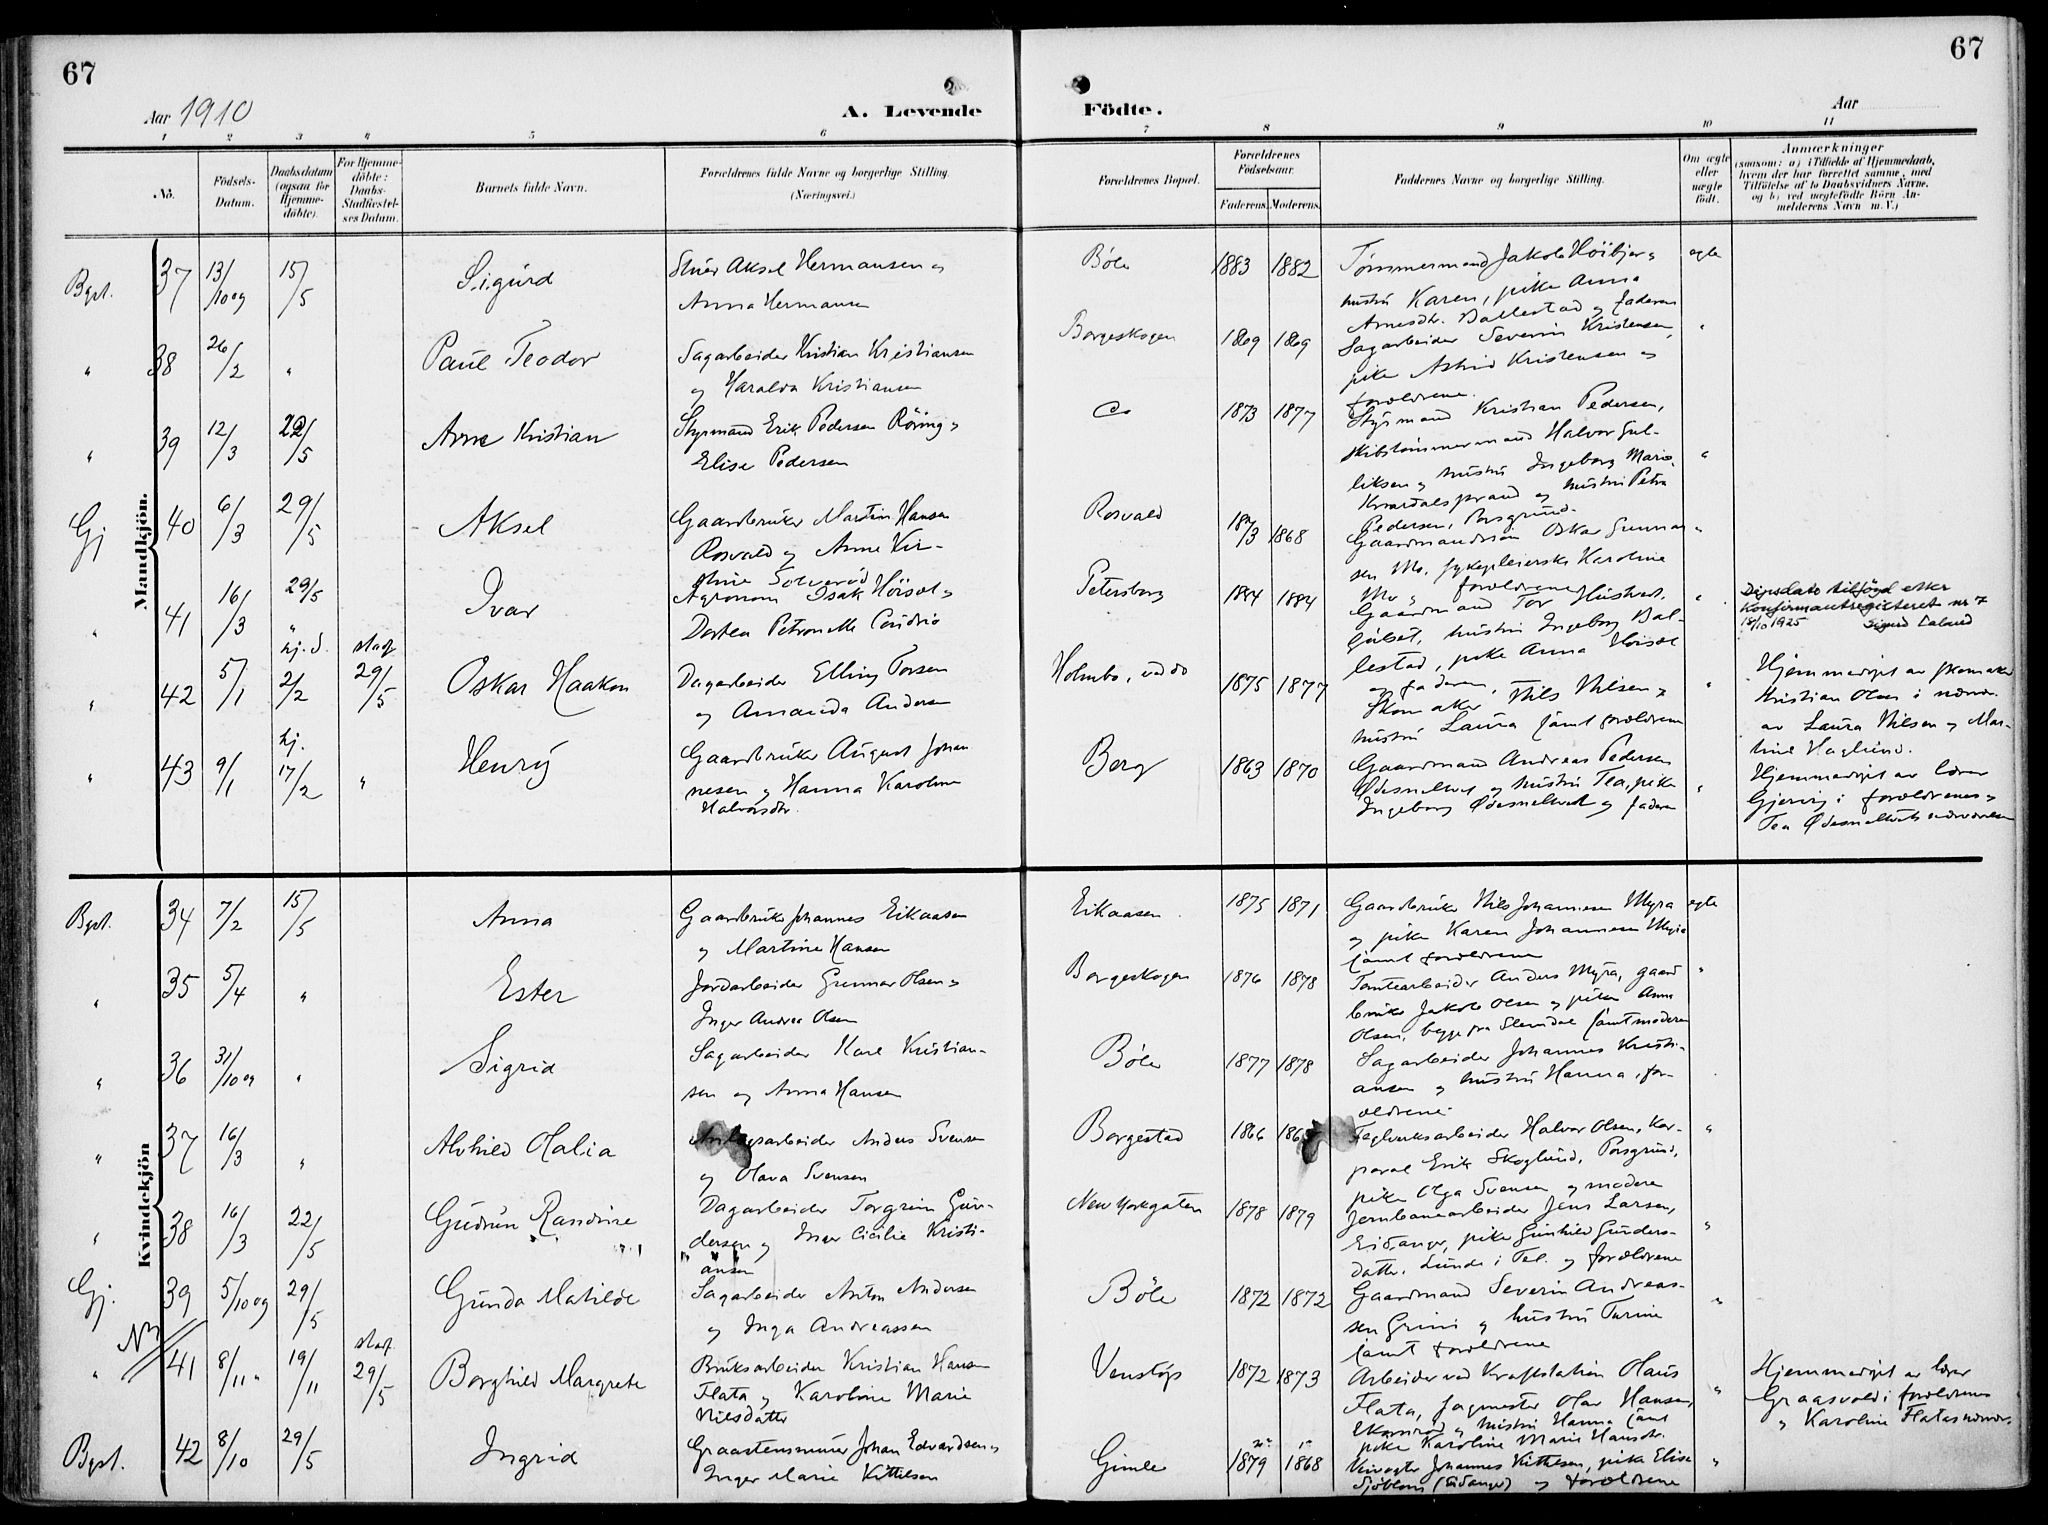 67
67
Aar 1910
A. Levende
Födte.
Aar
1 2 3 4 5 6 7 8 9 10 11
No.
Födsels-
Datum.
Daabsdatum
(ogsaa for
Hjemme-
döbte).
For Hjemme-
döbte:
Daabs-
Stadfæstel-
ses Datum.
Barnets fulde Navn.
Forældrenes fulde Navne og borgerlige Stilling.
(Næringsvei.)
Forældrenes Bopæl.
Forældrenes
Födselsaar.
Faderens. Moderens.
Faddernes Navne og borgerlige Stilling.
Om ægte
eller
uægte
födt.
Anmærkninger
(saasom: a) i Tilfælde af Hjemmedaab,
hvem der har forrettet samme, med
Tilföielse af to Daabsvidners Navne,
og b) ved uægtefödte Börn An-
melderens Navn m. V.)
Mandkjön.
Bgst. 37 13/10 09 15/5 Sigurd
Aksel Hermansen og
Anna Hermansen
Böle 1883 1882
Tömmermand Jakob
hustru Karen, pike Anna
Ballestad og faderen
egte
" 38 26/2 " Paul Teodor
Sagarbeider Kristian Kristiansen
og Haralda Kristiansen
Borgeskogen 1869 1869
Sagarbeider Severin Kristensen,
pike Astrid Kristensen og
forældrene.
"
" 39 12/3 22/5 Arne Kristian
Styrmand Erik Pedersen Röing og
Elise Pedersen
Do 1873 1877
Styrmand Kristian Pedersen,
skibstömmermand Halvor Gul-
liksen og hustru Ingeborg Marie
og hustru Petra
Pedersen, Porsgrund.
"
Gj 40 6/3 29/5 Aksel
Gaardbruker Martin Hansen
Rosvald og Anne Kir-
stine
Rosvald 1873 1868
Gaardmandssön Oskar Gunnar
sen Mo, sykepleierske Karoline
Mo og forældrene
"
" 41 16/3 29/5 Ivar
Agronom Isak Höisæt og
Dortea Petronelle
Petersborg 1884 1884
Gaardmand Tor
hustru Ingeborg Bal-
lestad, pike Anna Höisæt
og faderen.
"
Digsdato tilföyd etter
Konfirmantregisteret nr 7
18/10 1925 Sigurd Lalund
" 42 5/1 hj. d. 2/2 stadf. 29/5 Oskar Haakon
Dagarbeider Elling Torsen
og Amanda Andersen
Holmbo, 1875 1877
Skomaker Nils Nilsen og
hustru Laura samt forældrene
"
Hjemmedöpt av skomaker
Kristian Olsen i nærv.
av Laura Nilsen og Mar-
tine Haglund.
" 43 9/1 hj. 17/2 " Henry
Gaardbruker August Johan
nesen og Hanna Karoline
Halvorsdtr.
Berg 1863 1870
Gaardmand Andreas Pedersen
Ödesneltvet og hustru Tea, pike
Ingeborg Ödesneltvet og faderen
"
Hjemmedöpt av lærer
Gjerving i forældrenes og
Tea Ödesneltvets nærværelse
Kvindekjön
Bgst. 34 7/2 15/5 Anna
Gaardbruker Johannes Eikaasen
og Martine Hansen
Eikaasen 1875 1871
Gaardbruker Nils Johannesen Myra
og pike Karen Johannesen Myra
samt forældrene
egte
" 35 5/4 " Ester
Jordarbeider Gunnar Olsen og
Inger Andrea Olsen
Borgeskogen 1876 1878
Tomtearbeider Anders Myra, gaard
bruker Jakob Olsen og pike Anna
Olsen, begge fra Slemdal samt moderen
"
" 36 31/10 09 " Sigrid
Sagarbeider Karl Kristian-
sen og Anna Hansen
Böle 1877 1878
Sagarbeider Johannes Kristi-
ansen og hustru Hanna, for-
ældrene.
" 37 16/3 " Alvhild Halia
Anders Svensen
og Olava Svensen
Borgestad 1866
Teglverksarbeider Halvor Olsen, kor-
poral Erik Skoglund, Porsgrund,
pike Olga Svensen og moderen
"
" 38 16/3 22/5 Gudrun Randine
Dagarbeider Torgrim Gun-
dersen og Inger Cicilie Kristi-
ansen
New Yorkgaten 1878 1879
Jernbanearbeider Jens Larsen,
Eidanger, pike Gunhild Gunders-
datter. Lunde i Tel. og forældrene
"
Gj. 39 5/10 09 29/5 Gunda Matilde
Sagarbeider Anton Andersen
og Inga Andreassen
Böle 1872 1872
Gaardmand Severin Andreas-
sen Grini og hustru Turine
samt forældrene
"
" 41 8/11 " 19/11 stadf. 29/5 Borghild Margrete
Bruksarbeider Kristian Hansen
Flata og Karoline Marie
Nilsdatter
Venstöp 1872 1873
Arbeider ved Kraftstation Olaus
Flata, fagmester Olav Hansen,
og hustru Hanna samt
pike Karoline Marie Hansdtr.
"
Hjemmedöpt av lærer
Graasvold i forældrenes
og Karoline Flatas nærvær.
Bgst. 42 8/10 29/5 Ingrid
Graastensmurer Johan Edvardsen og
Inger Marie Kittelsen
Gimle 1879 1868
Johannes Kittelsen, pike Elise
Sjöblom (Eidanger) og forældrene
"